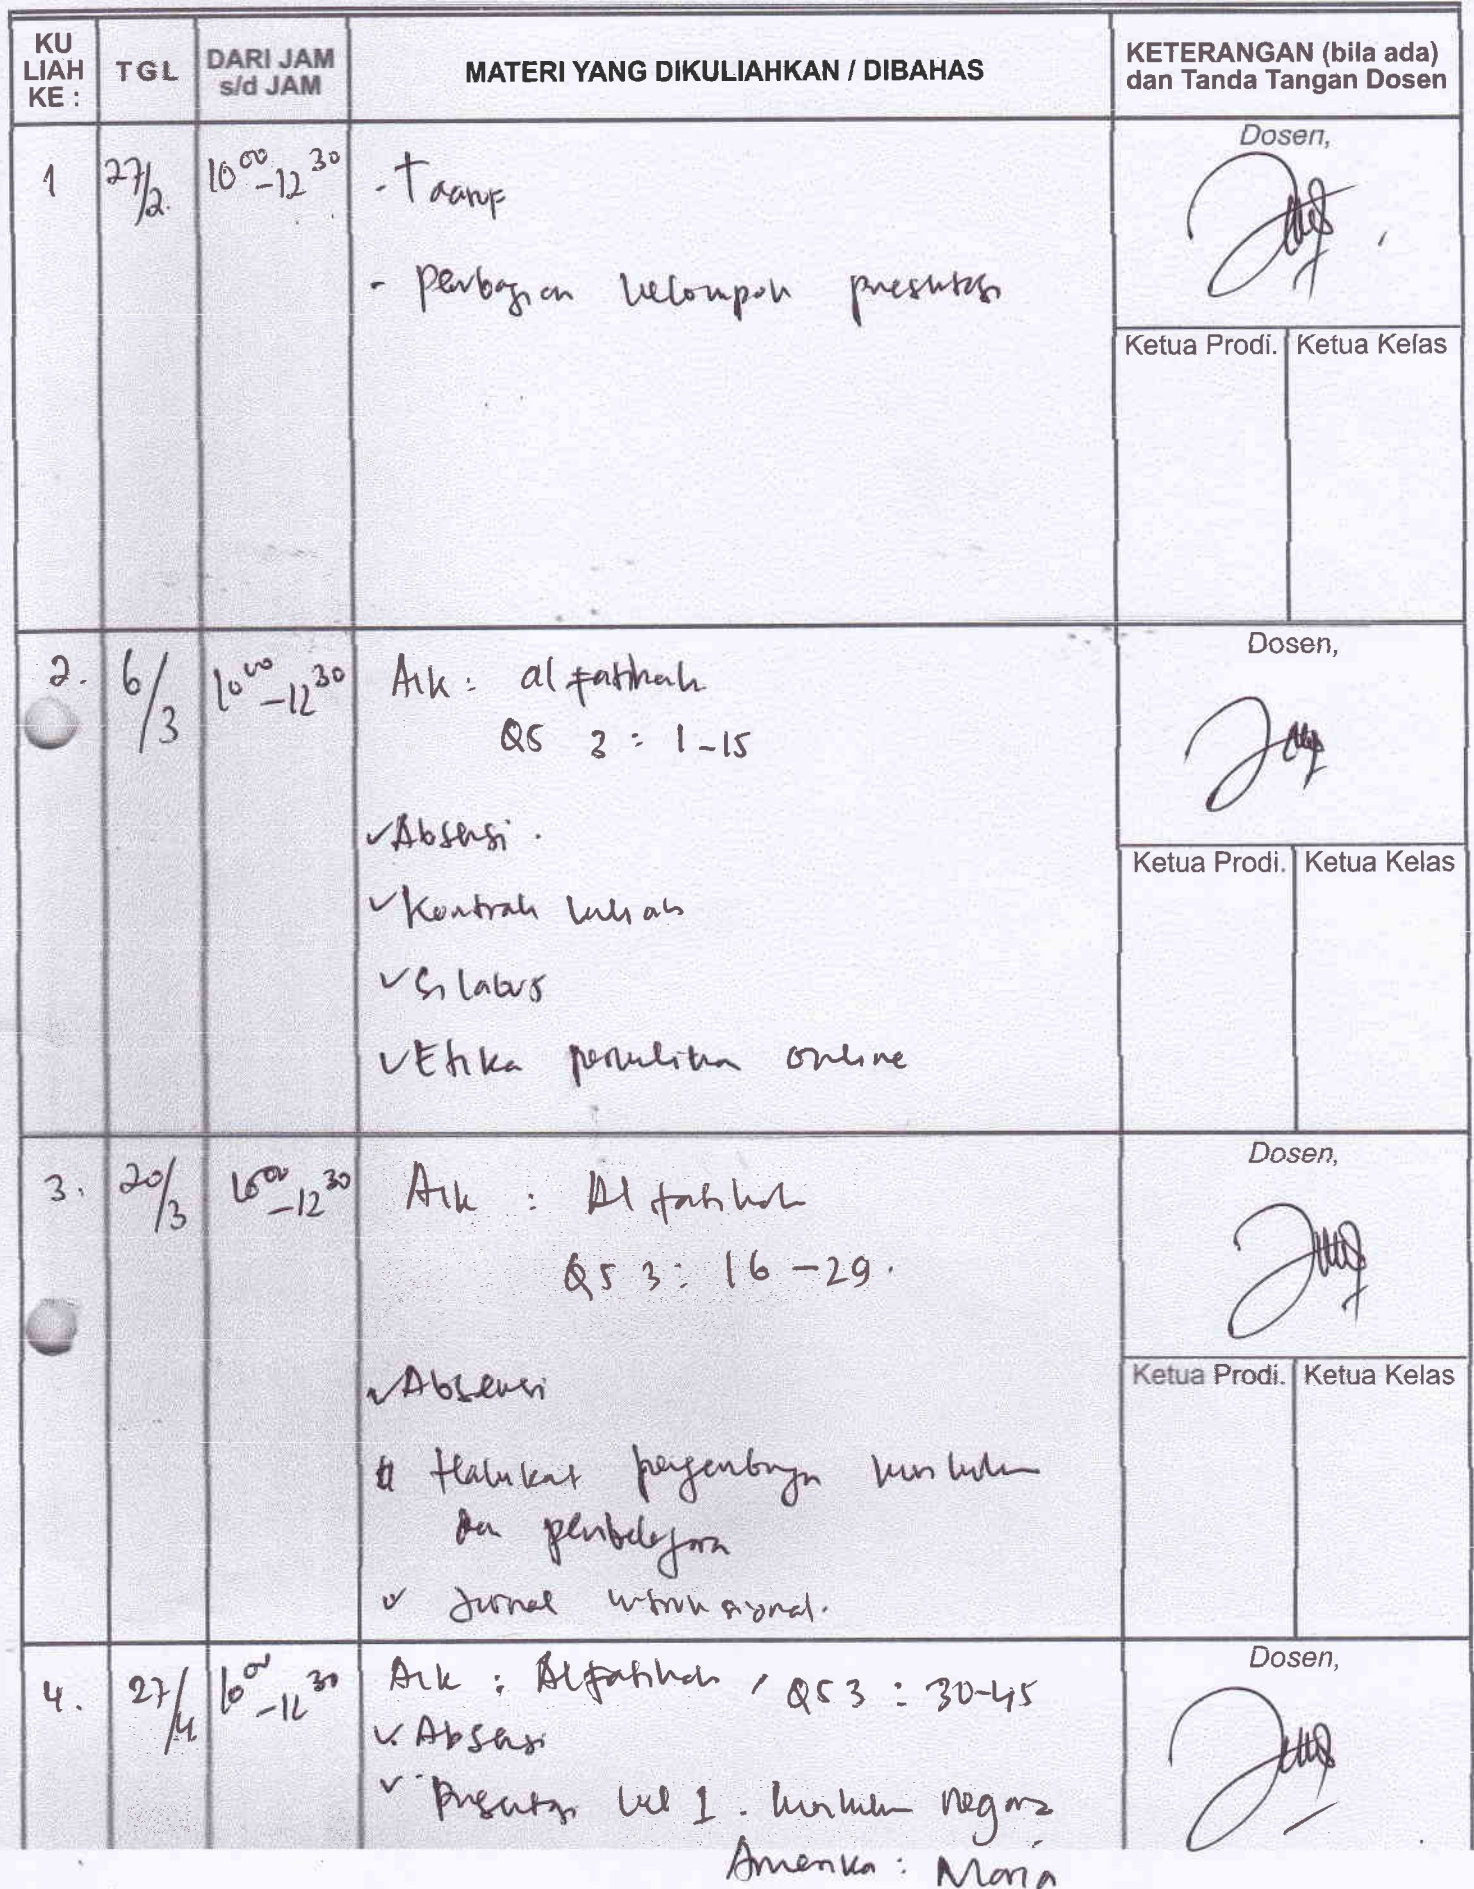 KU LIAH KE :
TGL
DARI JAM s/d JAM
MATERI YANG DIKULIAHKAN / DIBAHAS
KETERANGAN (bila ada) dan Tanda Tangan Dosen
1
27/2.
10 00 - 12 30
- Taaruf
- Pembagian kelompok presentasi
Dosen,
Ketua Prodi.
Ketua Kelas
2.
6/3
10 00 - 12 30
Aik : al fatihah
QS 3 : 1-15
✓ Absensi .
✓ Kontrak kuliah
✓ Silabus
✓ Etika penulitian online
Dosen,
Ketua Prodi.
Ketua Kelas
3.
20/3
10 00 - 12 30
Aik : Al fatihah
QS 3 : 16 - 29 .
✓ Absensi
Hakikat kurikulum
dan pembelajaran
✓ Jurnal
Dosen,
Ketua Prodi.
Ketua Kelas
4.
27/4
10 00 - 12 30
Aik : Alfatihah , QS 3 : 30-45
✓ Absensi
✓ Presentasi kel 1 . kurikulum negara
Amerika : Maria
Dosen,